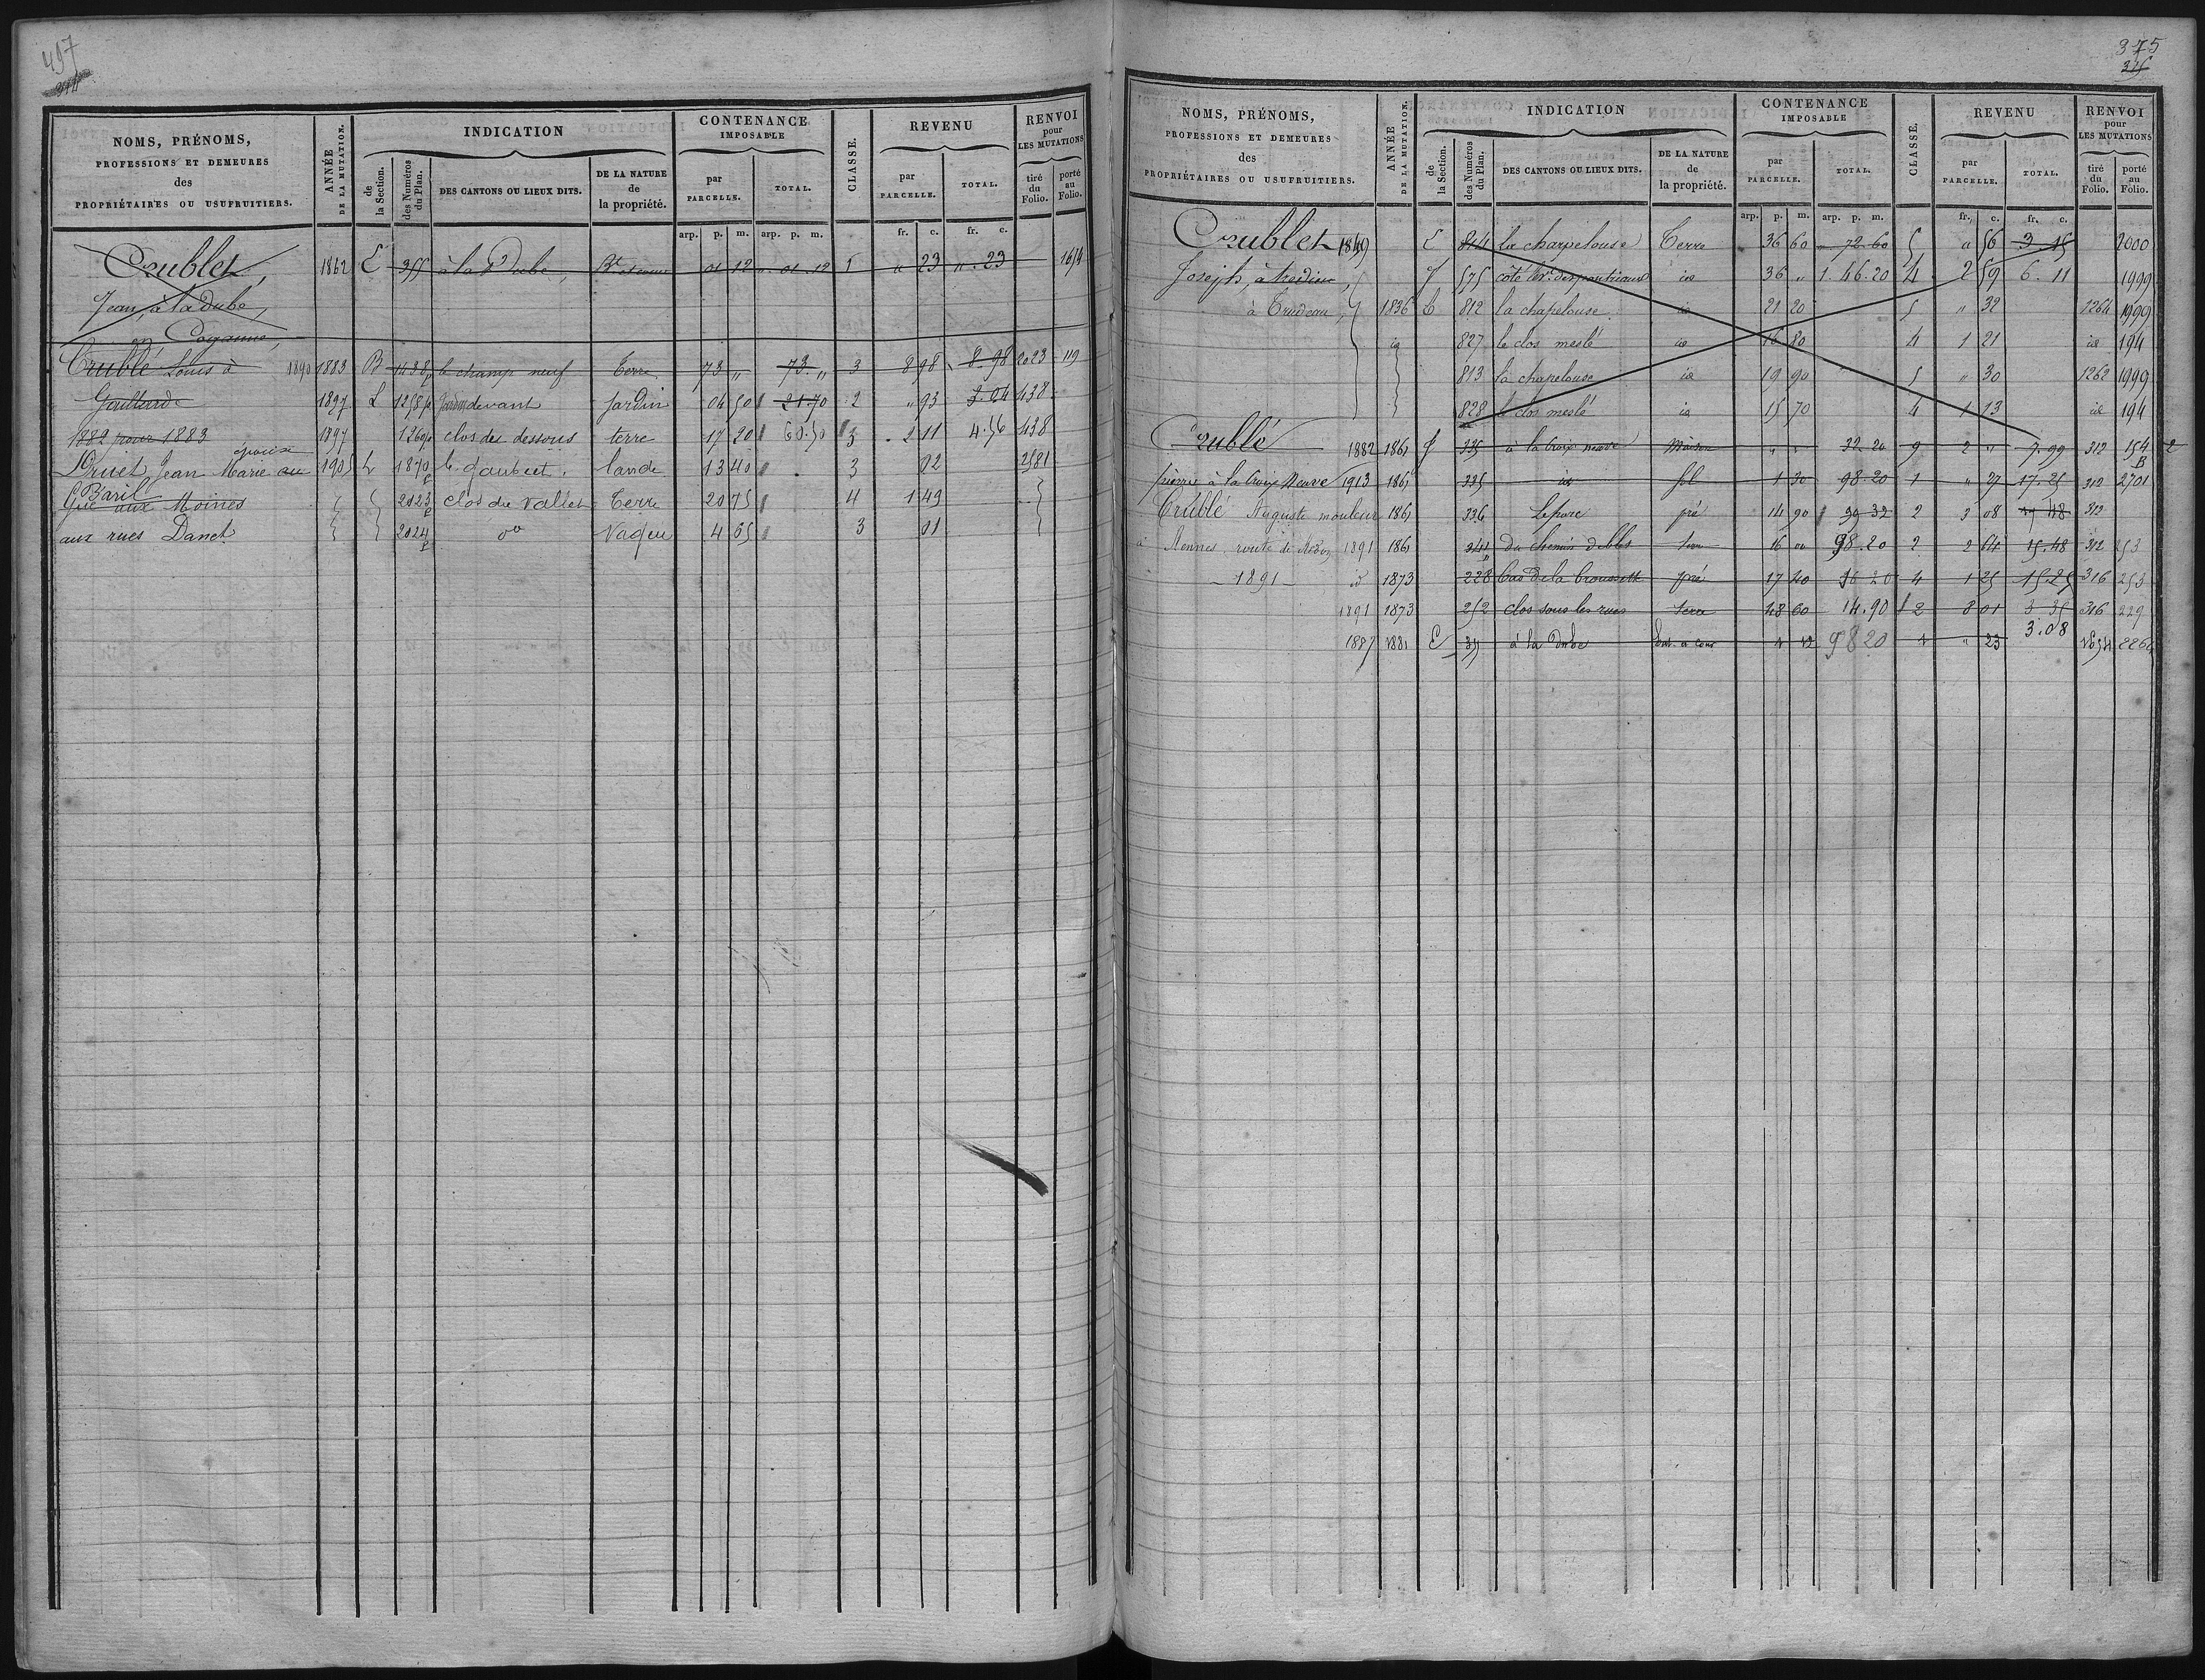 497
314
NOMS, PRÉNOMS,
PROFESSIONS ET DEMEURES
des
PROPRIÉTAIRES OU USUFRUITIERS.
ANNÉE
DE LA MUTATION.
INDICATION
de
la Section.
des Numéros
du Plan.
DES CANTONS OU LIEUX DITS.
DE LA NATURE
de
la propriété.
CONTENANCE
IMPOSABLE
par
PARCELLE.
TOTAL.
CLASSE.
REVENU
par
PARCELLE.
TOTAL.
RENVOI
pour
LES MUTATIONS
tiré
du
Folio.
porté
au
Folio.
arp. p. m. arp. p. m. fr. c. fr. c.
Crublet, 1862 E 355 à la Dube, 01 12 " 01 12 1 " 23 " 23 1654
Jean, à la Dube,
en
Crublé Louis à 1890 1883 B 1438p le champ neuf Terre 73 " 73 " 3 8 98 8 98 2023 119
Gaillarde 1897 L 1258p devant Jardin 04 50 21.70 2 " 93 3.04 438
1882 pour 1883 1897 1260p clos des dessous terre 17 20 60.50 3 2 11 4.56 438
épouse
Privet Jean Marie au 1905 L 1870 le lande 13 40 3 02 2581
Baril
Gué aux Moines 2023p clos du vallet Terre 20 75 4 1 49
aux rues Danet 2024p do Vague 4 65 3 01
375
315
NOMS, PRÉNOMS,
PROFESSIONS ET DEMEURES
des
PROPRIÉTAIRES OU USUFRUITIERS.
ANNÉE
DE LA MUTATION.
INDICATION
de
la Section.
des Numéros
du Plan.
DES CANTONS OU LIEUX DITS.
DE LA NATURE
de
la propriété.
CONTENANCE
IMPOSABLE
par
PARCELLE.
TOTAL.
CLASSE.
REVENU
par
PARCELLE.
TOTAL.
RENVOI
pour
LES MUTATIONS
tiré
du
Folio.
porté
au
Folio.
arp. p. m. arp. p. m. fr. c. fr. c.
Crublet 1849 E 814 la chapelouse Terre 36 60 " 72 60 5 " 56 3 15 2000
Joseph, à 575 coté id 36 " 1.46.20 4 2 59 6.11 1999
à Trudeau, 1836 E 812 la chapelouse id 21 20 5 " 32 1264 1999
id 827 le clos meslé id 16 80 4 1 21 id 194
813 la chapelouse id 19 90 5 " 30 1262 1999
828 le clos meslé id 15 70 4 1 13 id 194
Crublé 1882 1861 335 à la Croix neuve Maison " " 32 20 9 2 " 7.99 312 154 2
B
pierre à la Croix Neuve 1913 1861 335 id sol 1 30 98.20 1 " 27 17.25 312 2701
Crublé Auguste mouleur 1861 336 pré 14 90 39 32 2 3 08 312
à Rennes, route de Redon 1891 1861 341 du chemin terre 16 00 98.20 2 2 64 15.48 312 253
1891 id 1873 228 Bas de la broussette pré 17 40 4 1 25 15.25 316 253
1891 1873 252 clos sous les rues terre 48 60 14.90 2 8 01 3 35 316 229
1887 1881 E 355 à la Dube 1 12 98 20 1 " 23 3.08 1654 2260